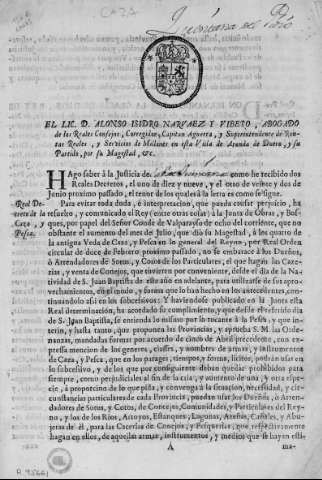 CAZA
Quintana del Pidio
EL LIC. D. ALONSO ISIDRO NARVAEZ Y VIBERO, ABOGADO
de los Reales Consejos, Corregidor, Capitan Aguerra, y Superintendente de Ren-
tas Reales, y Servicios de Millones en esta Villa de Aranda de Duero, y su
Partido, por su Magestad, &c.
HAgo saber à la Justicia de como he recibido dos
Reales Decretos, el uno de diez y nueve, y el otro de veinte y dos de
Junio proximo passado, el tenor de los quales à la letra es como se sigue.
Real De-
creto de
Caza, y
Pesca.
Para evitar toda duda, ò interpretacion, que pueda causar perjuicio, ha
resuelto, y comunicado el Rey (entre otras cosas) à la Junta de Obras, y Bos-
ques, por papel del Señor Conde de Valparayso de ocho del corriente, que no
obstante el aumento del mes de Julio, que diò su Magestad, à los que dicta
la antigua Veda de Caza, y Pesca en lo general del Reyno, por Real Orden
circular de doce de Febrero proximo passado, no se embarace à los Dueños,
ò Arrendadores de Sotos, y Cotos de Particulares, el que hagan las Caze-
rias, y venta de Conejos, que tuvieren por conveniente, desde el dia de la Nati-
vidad de S. Juan Baptista de este año en adelante, para utilizarse de sus apro-
vechamientos, eligiendo, y formas que lo han hecho en los antecedentes, con-
tinuandolo assi en los subcesivos: Y haviendose publicado en la Junta esta
Real determinacion, ha acordado su cumplimiento, y que desde el referido dia
de S. Juan Baptista, se entienda lo mismo por lo tocante à la Pesca, y que in-
terin, y hasta tanto, que propongan las Provincias, y aprueba S. M. las Orde-
nanzas, mandadas formar por acuerdo de cinco de Abril precedente, con ex-
pressa mencion de los generos, clases, y nombres de armas, y instrumentos de
Caza, y Pesca, que en los parages, tiempos, y forma, licitos, podràn usar en
lo subcesivo, y de los que por consiguiente deban quedar prohibidos para
siempre, como perjudiciales al fin de la cria, y aumento de una, y otra espe-
cie, à proporcion de lo que pida, y convenga à la situacion, necesidad, y cir-
cunstancias particulares de cada Provincia, puedan usar los Dueños, ò Arren-
dadores de Sotos, y Cotos, de Conejos, Comunidades, y Particulares del Rey-
no, y los de los Rios, Arroyos, Estanques, Lagunas, Azeñas, Canales, y Abu-
reras de èl, para las Cacerias de Conejos, y Pesquerias, que respectivamente
hagan en ellos, de aquellas armas, instrumentos, y medios que se hayan esti-
A
ma-
R. 95661